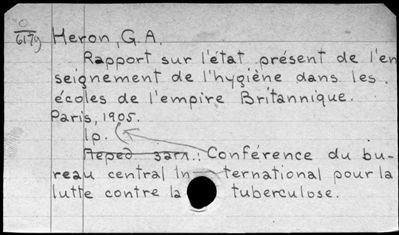 O
617g Heron, G.A.
Rapport sur l'état présent de l'en
seignement de l'hygiène dans les
écoles de l'empire Britannique.
Paris, 1905.
1p. (
Перед загл.: Conférence du bu-
reau central In ternational pour la
lutte contre la tuberculose.